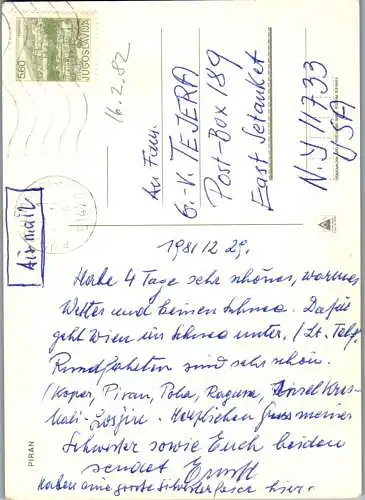 5.60
JUGOSLAVIJA
16.2.82
Airmail
An Fam.
G.-V. TEJERA
Post-Box 189
East Setauket
N.Y 11733
USA
1981 12 29.
Habe 4 Tage sehr schönes, warmes
Wetter und keinen Schnee. Dafür
geht Wien im Schnee unter. /Lt. Telef.
Rundfahrten sind sehr schön.
/Koper, Piran, Pola, Ragusa, Insel
Mali-Losjin. Herzlichen Gruss meiner
Schwester sowie Euch beiden
sendet Ernst
Haben eine grosse Silvesterfeier hier.
PIRAN